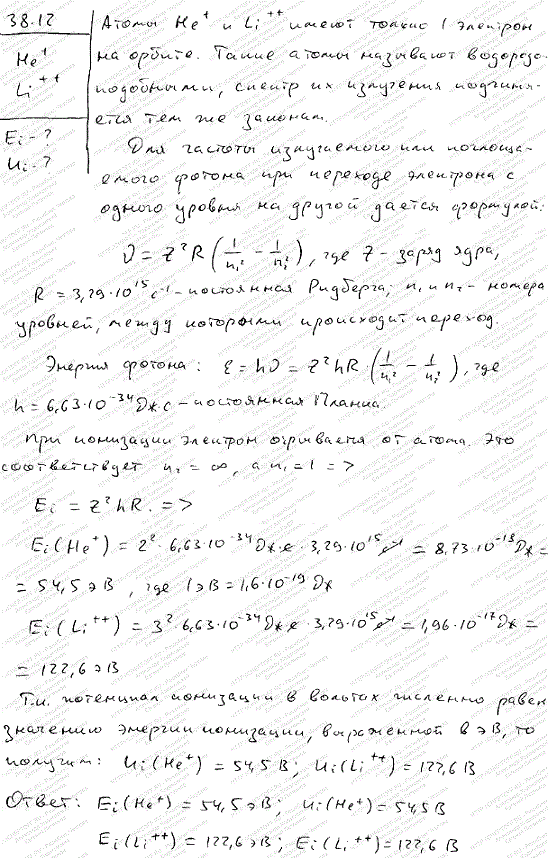 38.12
He⁺
Li⁺⁺
Ei - ?
Ui - ?
Атомы He⁺ и Li⁺⁺ имеют только 1 электрон
на орбите. Такие атомы называют водородо-
подобными, спектр их излучения подчиня-
ется тем же законам.
Для частоты излучаемого или поглоща-
емого фотона при переходе электрона с
одного уровня на другой дается формулой:
ν = Z²R (1/n₁² - 1/n₂²), где Z - заряд ядра,
R = 3,29·10¹⁵ с⁻¹ - постоянная Ридберга; n₁ и n₂ - номера
уровней, между которыми происходит переход.
Энергия фотона: ε = hν = Z²hR·(1/n₁² - 1/n₂²), где
h = 6,63·10⁻³⁴ Дж·с - постоянная Планка.
При ионизации электрон отрывается от атома. Это
соответствует n₂ = ∞, а n₁ = 1 =>
Ei = Z²hR. =>
Ei(He⁺) = 2²·6,63·10⁻³⁴ Дж·с·3,29·10¹⁵ с⁻¹ = 8,73·10⁻¹⁸ Дж =
= 54,5 эВ, где 1эВ = 1,6·10⁻¹⁹ Дж
Ei(Li⁺⁺) = 3²·6,63·10⁻³⁴ Дж·с·3,29·10¹⁵ с⁻¹ = 1,96·10⁻¹⁷ Дж =
= 122,6 эВ
Т.к. потенциал ионизации в вольтах численно равен
значению энергии ионизации, выраженной в эВ, то
получим: Ui(He⁺) = 54,5 В; Ui(Li⁺⁺) = 122,6 В
Ответ: Ei(He⁺) = 54,5 эВ; Ui(He⁺) = 54,5 В
Ei(Li⁺⁺) = 122,6 эВ; Ei(Li⁺⁺) = 122,6 В